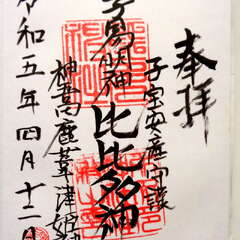 奉拝
子宝安産守護
子易明神
比比多神
神吾鹿葦津姫
令和五年四月十二日